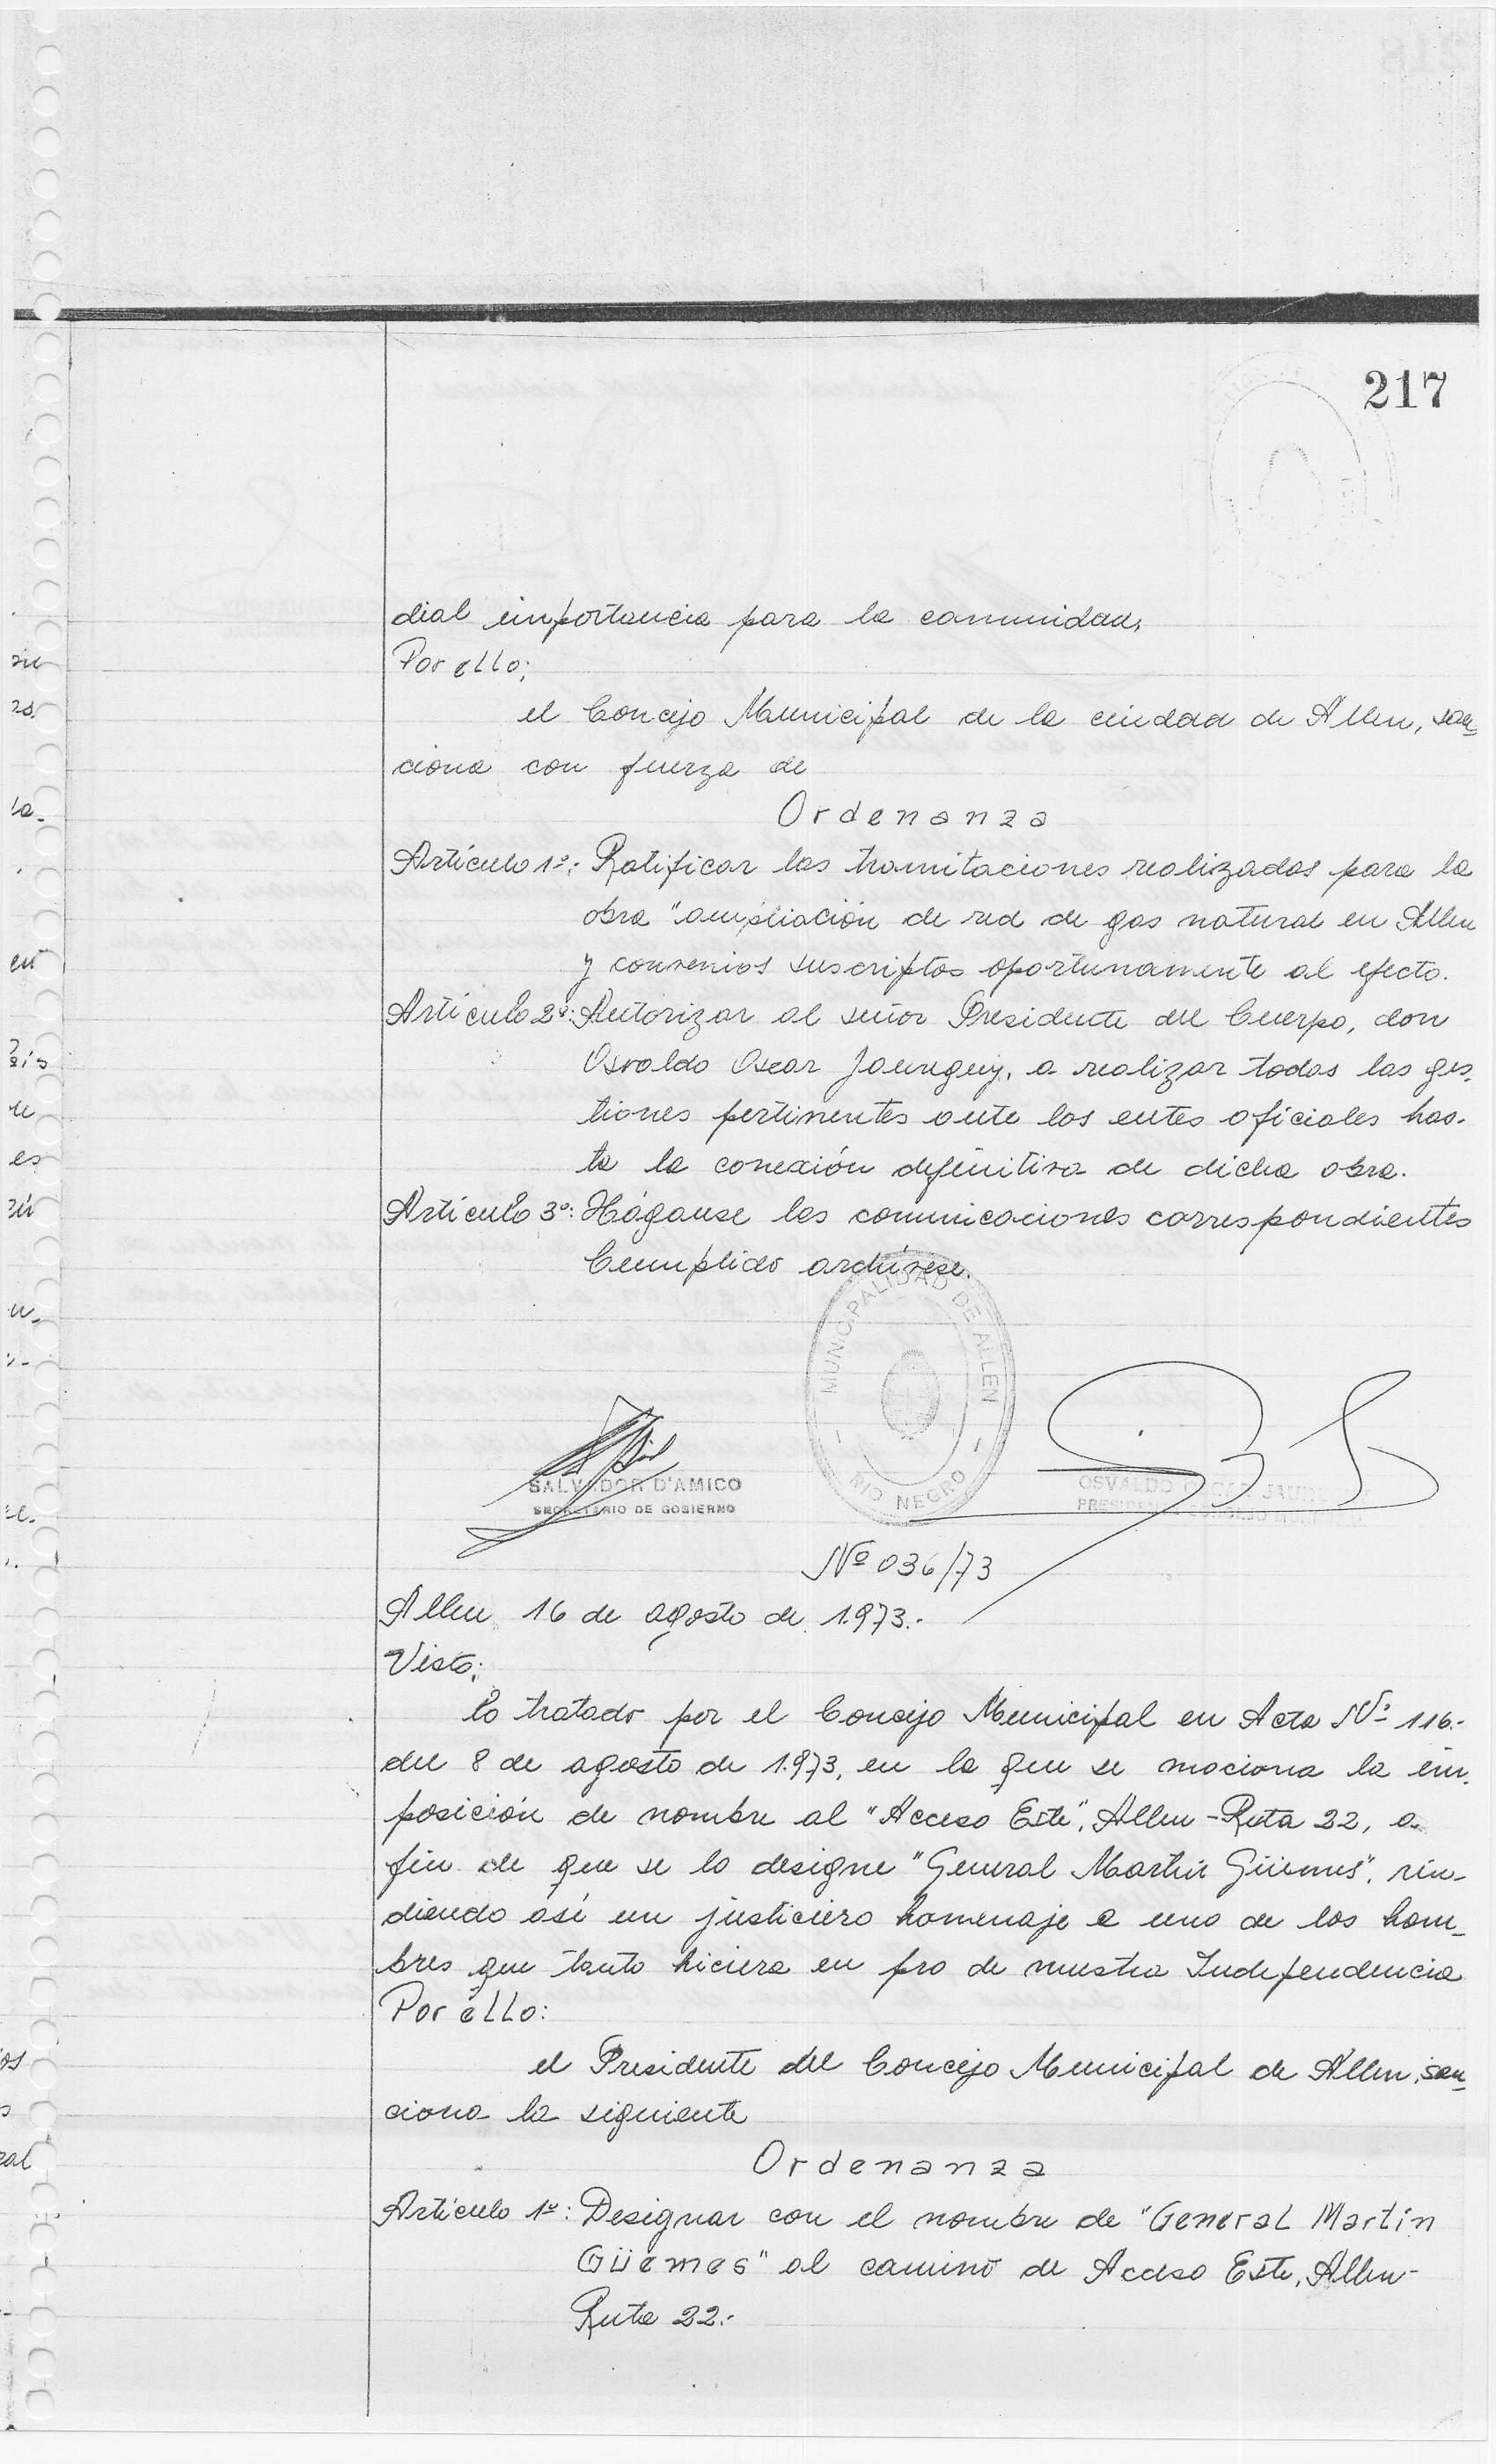 217
dial importancia para la comunidad,
Por ello;
el Concejo Municipal de la ciudad de Allen, san
ciona con fuerza de
Ordenanza
Artículo 1º: Ratificar las tramitaciones realizadas para la
obra "ampliación de red de gas natural en Allen
y convenios suscriptos oportunamente al efecto.
Artículo 2º: Autorizar al señor Presidente del Cuerpo, don
Osvaldo Oscar Jaureguy, a realizar todas las ges-
tiones pertinentes ante los entes oficiales has-
ta la conexión definitiva de dicha obra.
Artículo 3º: Háganse las comunicaciones correspondientes
Cumplido archívese.
MUNICIPALIDAD DE ALLEN
- RIO NEGRO -
SALVADOR D'AMICO
SECRETARIO DE GOBIERNO
OSVALDO OSCAR
PRESIDENTE
Nº 036/73
Allen 16 de agosto de 1.973.-
Visto:
lo tratado por el Concejo Municipal en Acta Nº 116.-
del 8 de agosto de 1.973, en la que se mociona la im-
posición de nombre al "Acceso Este", Allen - Ruta 22, a
fin de que se lo designe "General Martín Güemes", rin-
diendo así un justiciero homenaje a uno de los hom-
bres que tanto hiciera en pro de nuestra Independencia
Por ello:
el Presidente del Concejo Municipal de Allen, san
ciona la siguiente
Ordenanza
Artículo 1º: Designar con el nombre de "General Martín
Güemes" al camino de Acceso Este, Allen-
Ruta 22.-